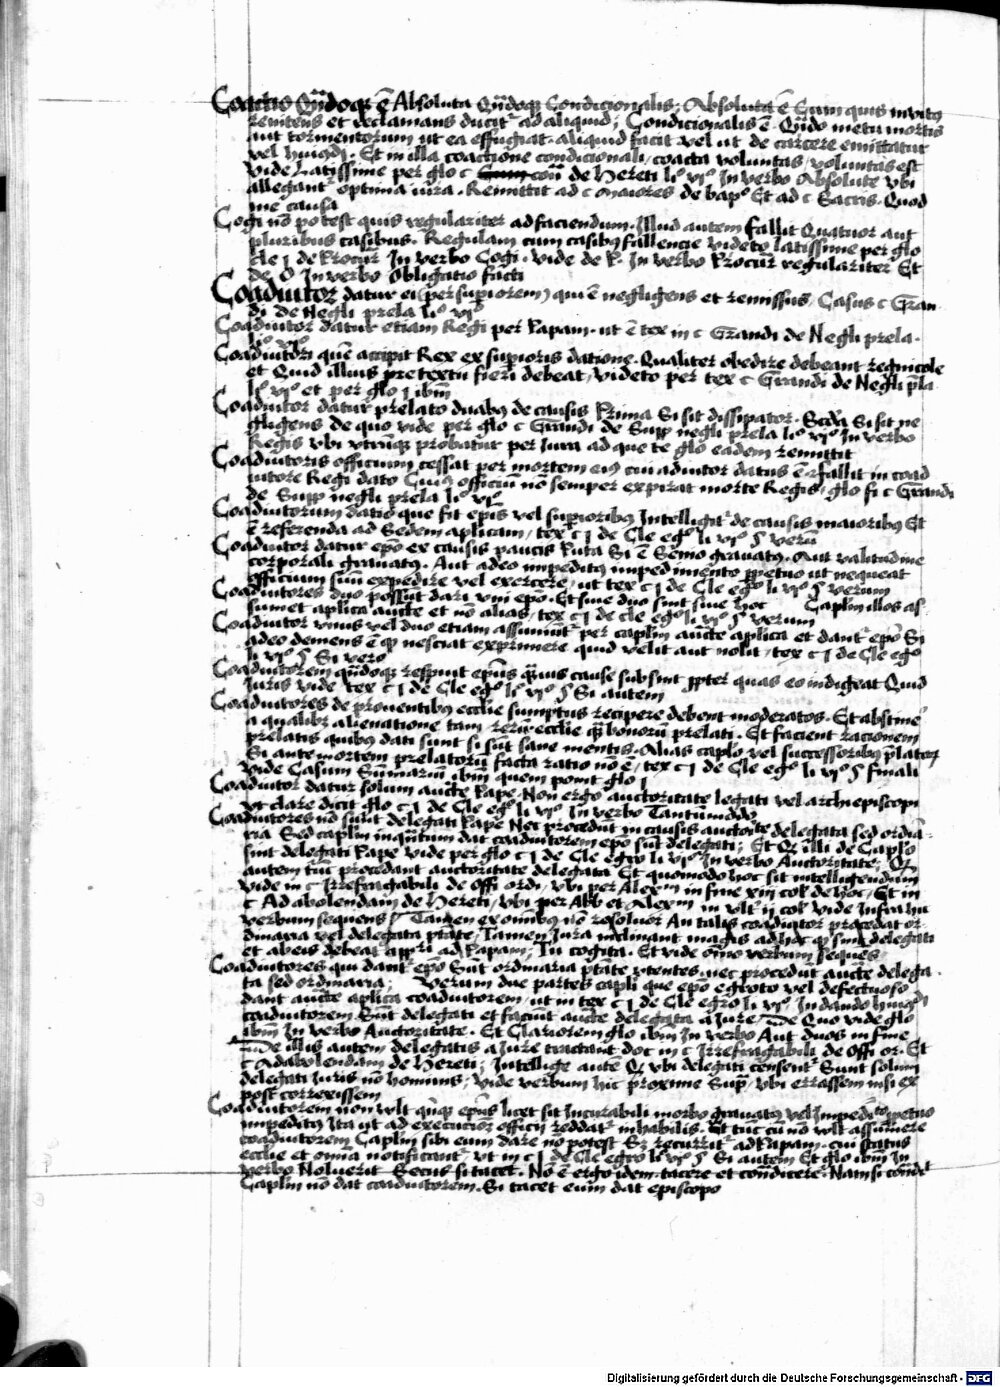 Coactio Qñdoqꝫ ē Absoluta Qñdoqꝫ Condicionalis. Absoluta ē Cum quis invitꝰ
renitens et reclamans ducitʳ ad aliquid. Condicionalis ē. Qñdo metu mortis
aut tormentorum ut ea effugiat. aliquid facit vel ut de carcere emittatur
vel huiꝰmodi. Et in illa coactione condicionali / coacta voluntas / voluntas est
Vide Latissime per glo c coñ de Hereti liº viº In verbo Absolute vbi
allegantʳ optima iura. Remittit ad c Maiores de bapº Et ad c Sacris. Quod
me causa
Cogi nõ potest quis regulariter ad faciendum. Illud autem fallit Quatuor aut
pluribus casibus. Regulam cum casibꝰ fallencie videto latissime per glo
cle j de procur In verbo Cogi. vide de P. In verbo Procur̃ regulariter Et
de O In verbo Obligatio facti
Coadiutor datur ei (per supiorem) qui ē negligens et remissus / Casus c Gran-
di de Negli prela liº viº
Coadiutor datur etiam Regi per Papam. ut ē tex in c Grandi de Negli prela.
liº viº
Coadiutori quē accipit Rex ex supioris datione. Qualiter obedire debeant regnicole
et Quid illius pretextu fieri debeat / videto per tex c Grandi de Negli pla
liº viº et per glo j ibm̃
Coadiutor datur prelato duabꝰ de causis Prima Si sit dissipator. Scd̃a Si sit ne
gligens de quo vide per glo c Grandi de Supp negli prela liº viº In verbo
Regis vbi vtrũqꝫ probatur per Iura ad que te glo eadem remittit
Coadiutoris officium cessat per mortem eiꝰ cui adiutor datus ē fallit in coad
iutore Regi dato Cuiꝰ officiũ nõ semper expirat morte Regis / glo fi c Grandi
de Supp negli prela liº viº
Coadiutorum datio que fit epis̃ vel supioribꝰ Intelligitʳ de causis maioribꝰ Et
ē referenda ad Sedem aplicam / tex c j de Cle egrº li viº § verũ
Coadiutor datur epõ ex causis paucis Puta Si ē Senio grauatꝰ. Aut valitudine
corporali grauatꝰ. Aut adeo impeditꝰ impedimento ppetuo ut nequeat
officium suũ expedire vel exercere / ut tex c j de Cle egrº li viº § verum
Coadiutores duo possũt dari vni epõ. Et siue duo sint siue hoc Caplm̃ illos as-
sumet aplica aucte et nõ alias / tex c j de cle egrº li viº § verum
Coadiutor vnus vel duo etiam assumũtʳ per caplm̃ aucte aplica et dantʳ epõ Si
adeo demens ē qꝫ nesciat exprimere quid velit aut nolit / tex c j de Cle egrº
li viº § Si vero
Coadiutorem qñdoqꝫ respuit epũs quis cause subsint ppter quas eo indigeat Quid
Iuris vide tex c j de Cle egrº liº viº § Si autem
Coadiutores de prouentibꝰ ecclie sumptus recipere debent moderatos. Et abstine
a qualibꝫ alienatione tam rerũ ecclie qꝫ bonorũ prelati. Et facient racionem
prelatis quibꝰ dati sunt si sũt sane mentis. Alias caplo vel successoribꝰ platorꝫ
Si ante mortem prelatorũ facta ratio nõ ē / tex c j de Cle egrº li viº § finali
vide Casum Sũmariũ ibm quem ponit glo j
Coadiutor datur solum aucte Pape. Non ergo auctoritate legati vel archiepiscopi
vt clare dicit glo c j de Cle egrº li viº In verbo Tantũmodo
Coadiutores nõ sunt delegati Pape Nec procedũt in causis auctorite delegata sed ordia-
ria Sed caplm̃ inquãtum dat coadiutorem epõ sũt delegati. Et Qꝫ illi de Caplo
sint delegati Pape vide per glo c j de Cle egro li viº In verbo Auctoritate. Qꝫ
autem tũc procedant auctoritate delegata Et quomodo hoc sit intelligendum
vide in c Irrefragabili de Offi ordi / vbi per Alexᵐ in fine xiij col de hoc / Et in
c Ad abolendam de Hereti / vbi per Abb et Alexᵐ in vltʳ ij col vide Infra hic
verbum sequens Tamen ex omnibꝰ nõ resoluor An talis coadiutor procedat or-
dinaria vel delegata ptate. Tamen Iura inclinant magis ad hoc qꝫ sint delegati
et ab eis debeat appʳi ad Papam. Tu cogita. Et vide om̃o verbum seques̃
Coadiutores qui dantʳ epõ Sunt ordinaria ptãte vtentes. nec procedũt aucte delega-
ta sed ordinaria. Verum due partes capli que epõ egroto vel defectuoso
dant aucte aplica coadiutorem / ut in tex c j de Cle egro li viº In dando huiꝰmodi
coadiutorem. Sũnt delegati et faciũt aucte delegata a Iure. De Quo vide glo
ibm̃ In verbo Auctoritate. Et Clariorem glo ibm̃ In verbo Aut duos in fine
De illis autem delegatis a Iure tractant doc in c Irrefragabili de Offi or. Et
c Ad abolendam de Hereti. Intellige ante Qꝫ vbi delegati censentʳ Sunt solum
delegati Iuris nõ hominis / vide verbum hic proxime Supʳ / vbi errassem nisi ex
post correxissem
Coadiutorem non vlt qñqꝫ epũs licet sit Incurabili morbo grauatꝰ vel Impedito ppetuo
impeditꝰ Ita ut ad execucioẽ officij reddatʳ inhabilis. Et tũc cũ nõ vlt assumere
coadiutorem Caplm̃ sibi eum dare nõ potest Sꝫ recurritʳ ad Papam. cui status
ecclie et om̃ia notificantʳ vt in c j de Cle egro li viº § Si autem Et glo ibm̃ In
verbo Noluerit Secus si tacet. Nõ ē ergo idem. tacere et cõtradicere. Nam si cõtradicit
Caplm̃ nõ dat coadiutorem. Si tacet eum dat episcopo
Digitalisierung gefördert durch die Deutsche Forschungsgemeinschaft - DFG